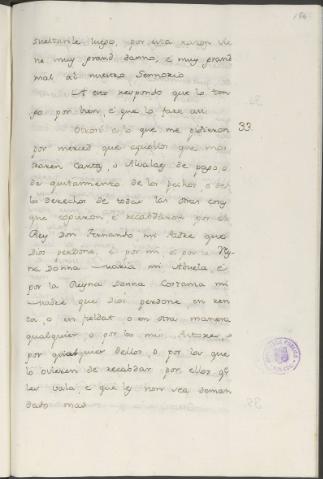 184
sueltanle luego, por esta raxon vie
ne muy grand danno, e muy grand
mal al nuestro Sennorio
A esto respondo que lo ten
go por bien, e que lo fare asi
Otrosi a lo que me pidieron 33.
por merced que aquellos que mos
traren Cartas, o Alvalaes de pago, o
de quitamiento de los pechos, o de
los derechos de todas las otras cosas
que cogieron e recabdaron por el
Rey Don Fernando mi Padre que
Dios perdone, e por mi, e por la Rey
na Donna Maria mi Abuela, e
por la Reyna Donna Costanza mi
Madre que Dios perdone en ren
ta, o en fieldat o en otra manera
qualquier o por los mis Tutores o
por qualquier dellos, o por los que
lo ovieren de recabdar por ellos q̃
les vala, e que les non sea deman
dado mas